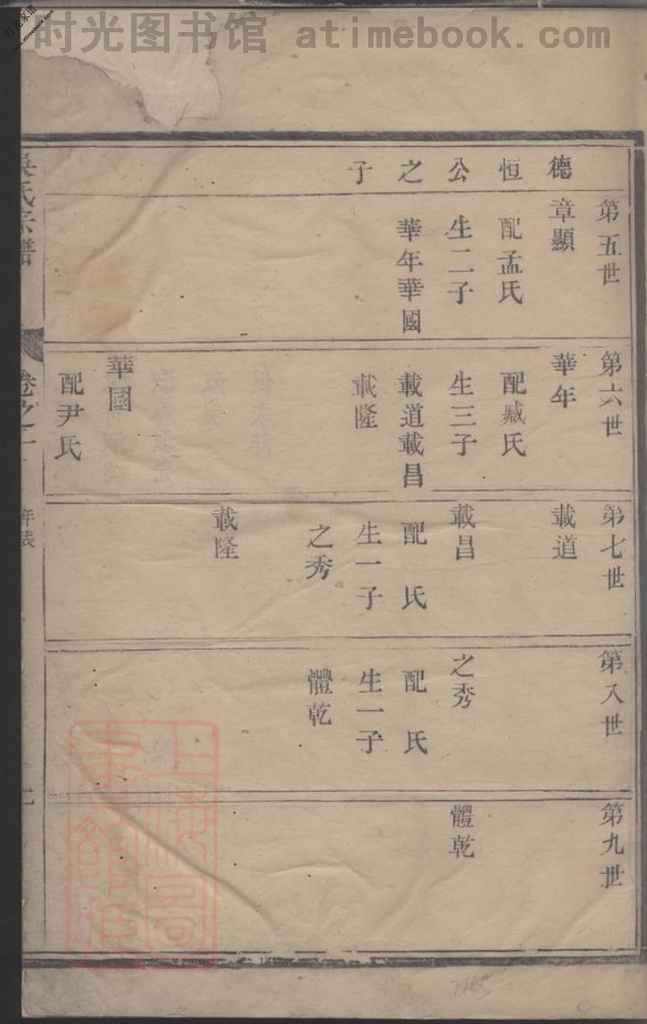 时光图书馆 atimebook.com
德恒公之子
第五世
章顯
配孟氏
生二子
華年華國
第六世
華年
配臧氏
生三子
載道載昌
載隆
華國
配尹氏
第七世
載道
載昌
配 氏
生一子
之秀
載隆
第八世
之秀
配 氏
生一子
體乾
第九世
體乾
吳氏宗譜
卷之
年表